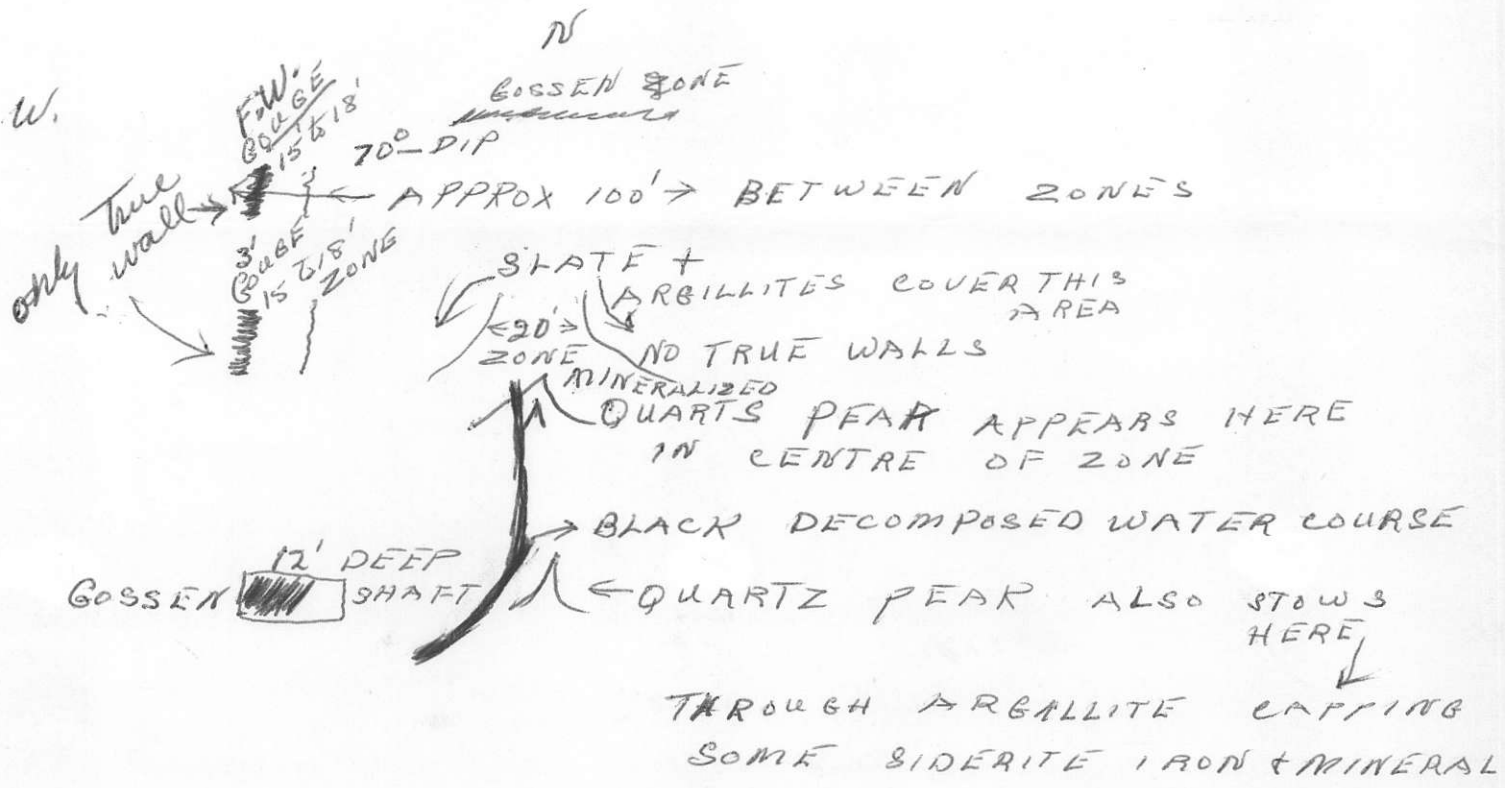 N
W.
GOSSEN ZONE
F.W.
GOUGE
15' to 18'
70° DIP
only true wall
← APPROX 100' → BETWEEN ZONES
3'
GOUGE
15 to 18'
ZONE
SLATE +
ARGILLITES COVER THIS
AREA
←20'→
ZONE
NO TRUE WALLS
MINERALIZED
QUARTS PEAK APPEARS HERE
IN CENTRE OF ZONE
→ BLACK DECOMPOSED WATER COURSE
12' DEEP
GOSSEN SHAFT
← QUARTZ PEAK ALSO STOWS
HERE
THROUGH ARGALLITE CAPPING
SOME SIDERITE IRON + MINERAL